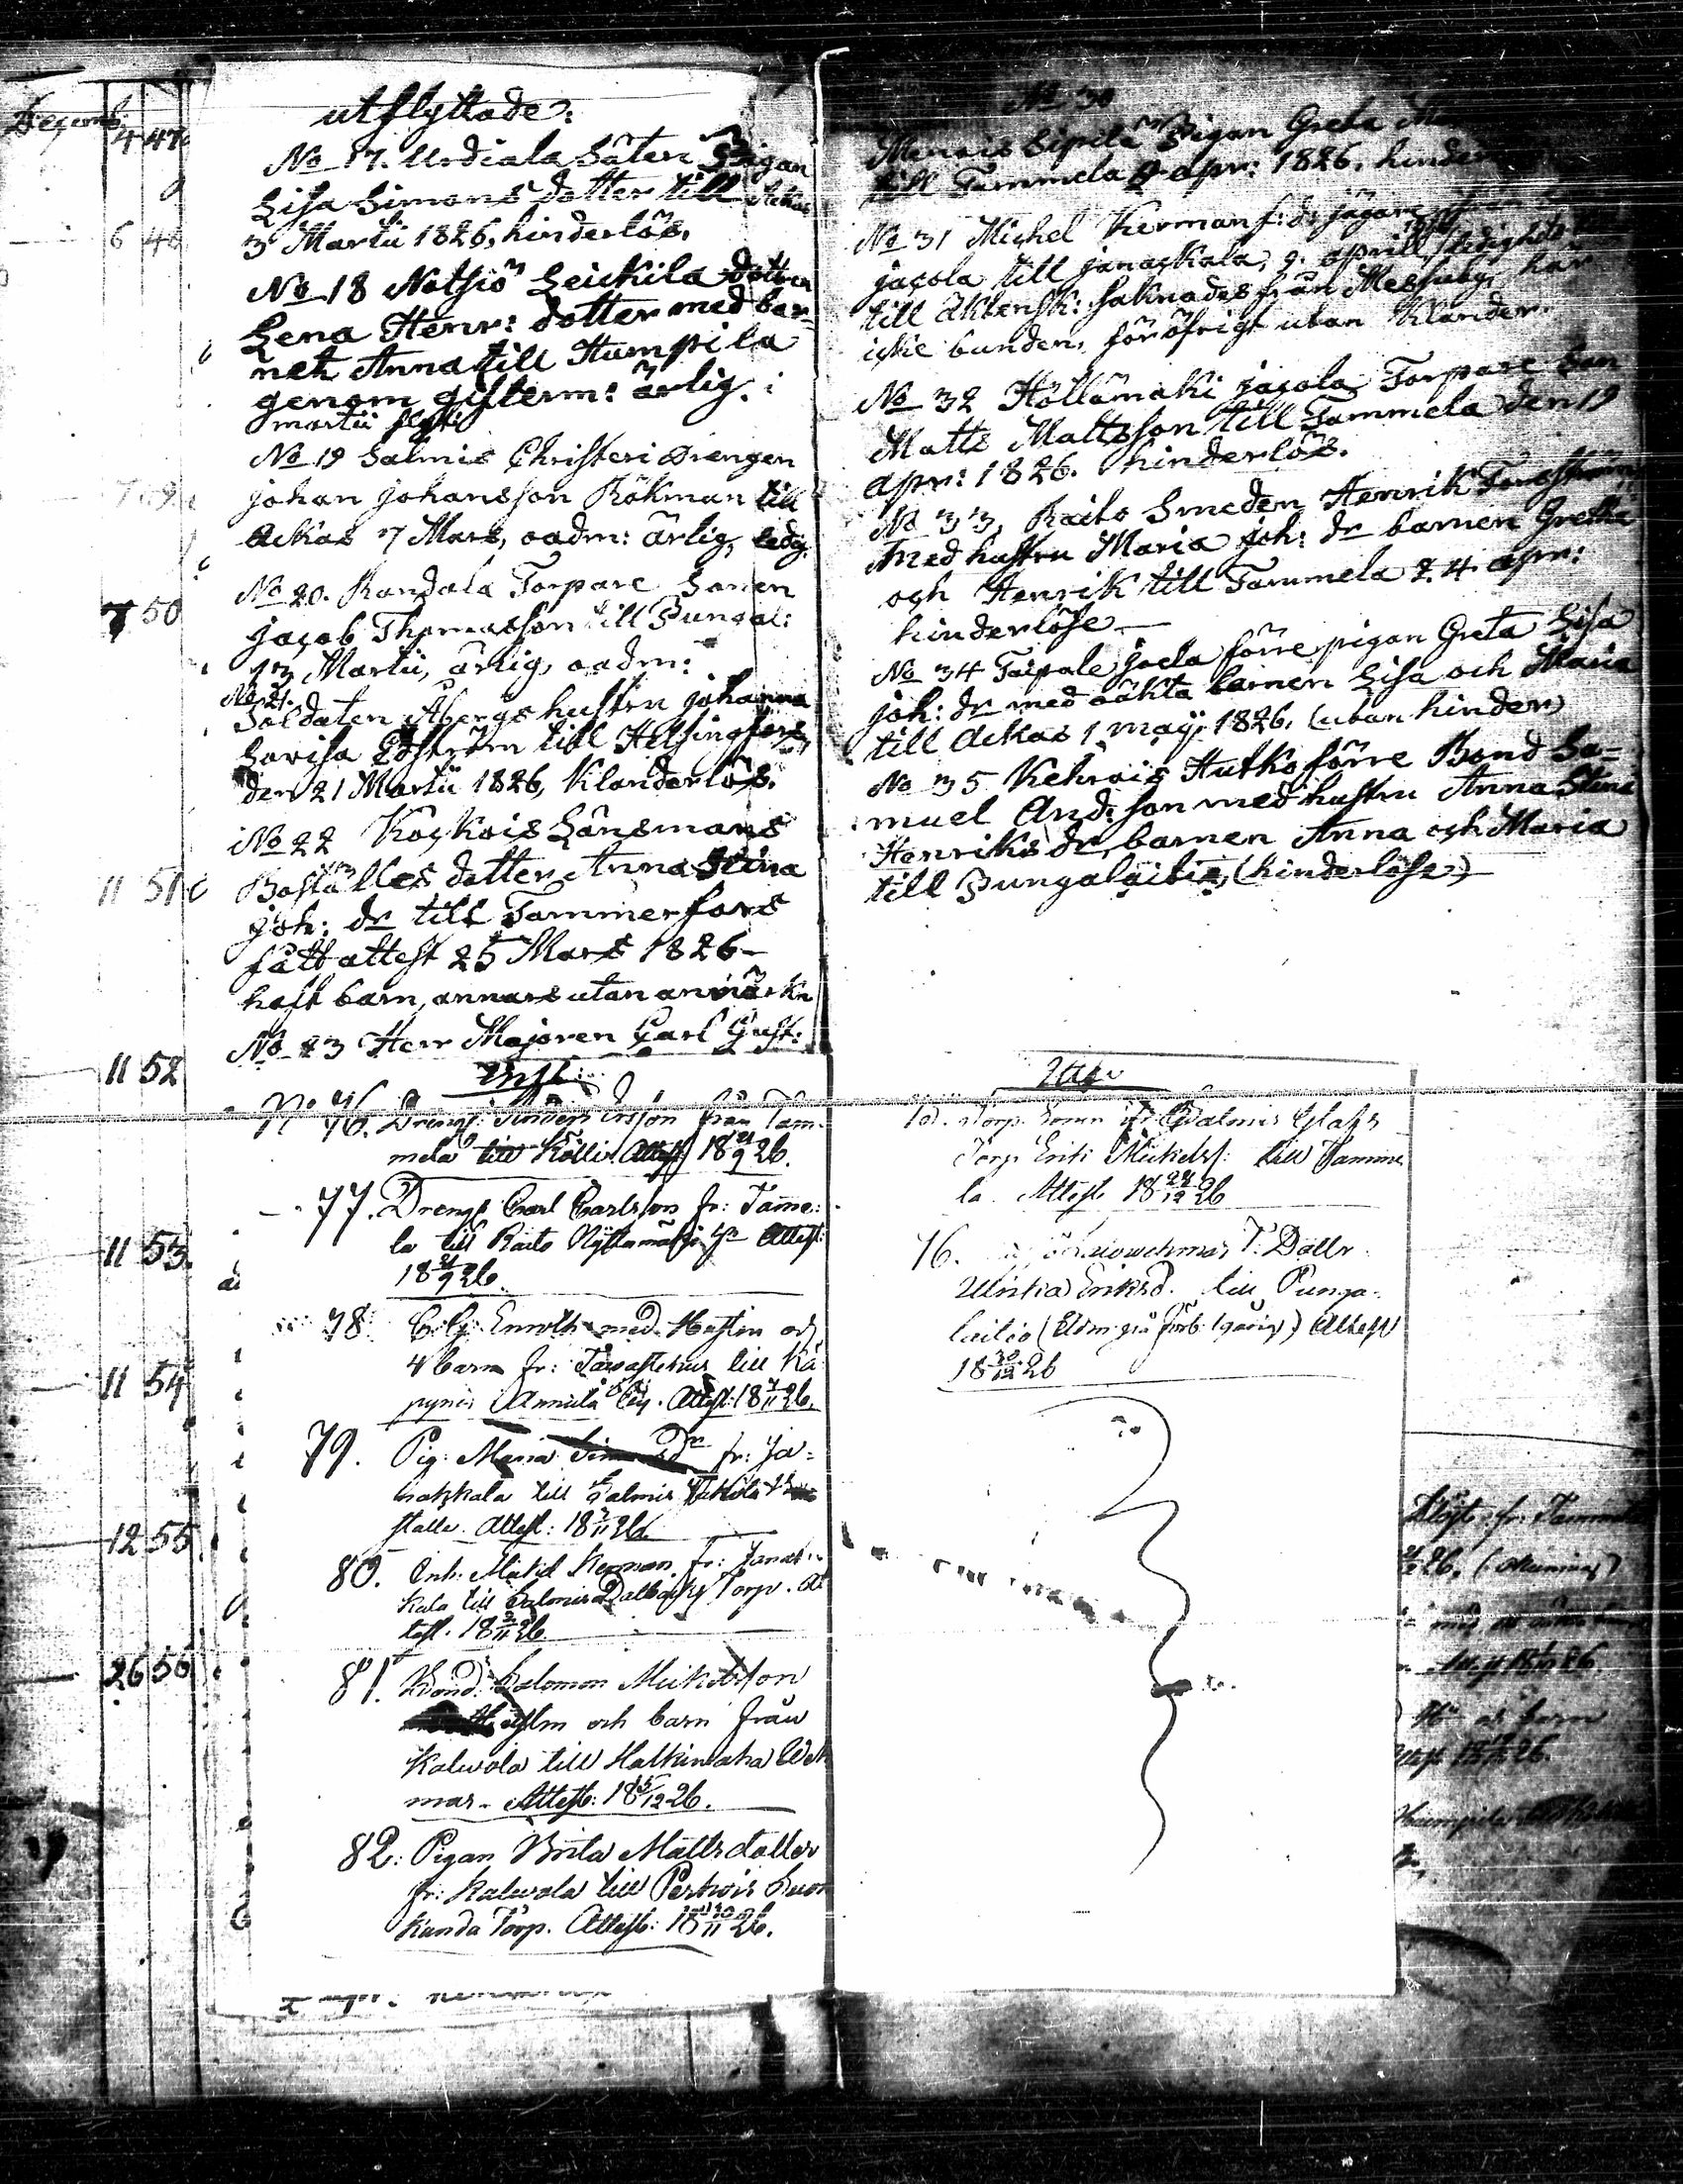 Decemb:
4 47
6 48
7 50
11 51
11 52
11 53
11 54
12 55
26 56
utflyttade:
No 17. Urdiala Säteri Pigan
Lisa Simons dotter till Ackas
3 Martii 1826, hinderlös.
No 18 Notsiö Leickila dottren
Lena Henr: dotter med bar-
net Anna till Humpila
genom gifterm: ärlig.
martii
No 19 Salmis Christeri Drengen
johan johansson Rökman till
Ackas 7 Mars, oadm: ärlig, ledig.
No 20. Randala Torpare Sonen
jacob Thomasson till Pungal:
13 Martii, ärlig, oadm:
No 21.
Soldaten Åbergs hustru johanna
Lovisa Edström till Helsingfors,
den 21 Martii 1826, Klanderlös.
No 22 Kåckois Länsmans
Boställes dotter Anna Stina
joh: dr till Tammerfors
fått attest 25 Mars 1826-
haft barn, annars utan anmärkn
No 23 Herr Majoren Carl Gust:
No 30
Menois Sipilä Pigan Greta
till Tammela 9 apr: 1826. hinder
No 31 Michel Kerman f: d: jägare
jacola till janackala, 9. aprill, ledighets
till äktensk: saknades från Messuby, har
icke bunden, föröfrigt utan Klander.
No 32 Hollämäki jacola Torpare Son
Matts Mattsson till Tammela den 19
apr: 1826. hinderlös.
No 33, Raito Smeden Henrik
med hustru Maria joh: dr barnen Gretha
och Henrik till Tammela 24 apr:
hinderlöse-
No 34 Taipale jaela förre pigan Greta Lisa
joh: dr med oäkta barnen Lisa och Maria
till Ackas 1 maji 1826. (utan hinder)
No 35 Kehrois Hutko förre Bond Sa-
muel And: son med hustru Anna Stina
Henriks dr, barnen Anna och Maria
till Pungalaitio, (hinderlöse)
Infl:
No 76. Dreng: Anders Ersson från Tam-
mela till Kölli. Attest 18 21/9 26.
77. Dreng: Carl Carlsson fr: Tamme:
la till Raito Attest:
18 21/9 26.
78. C: G: Enroth med Hustru och
4 barn fr: Tavastehus till Kä
pynis Annula Attest: 18 7/11 26.
79. Pig: Maria fr: Ja-
nakkala till Salmis
stalle. Attest: 18 7/11 26.
80. Enk: Mickel Kerman fr: Janak-
kala till Salmis Dalbacks Torp. At
test. 18 2/11 26
81. Bond: Salomon Mickelsson
Hustru och barn från
Kalvola till Halkivaha Wek
mas- Attest: 18 15/12 26.
82: Pigan Brita Mattsdotter
fr: Kalvola till Perkois Suon
kanda Torp. Attest: 18 30/11 26.
Utfl:
Torp: Sonen fr Salmis
Torp Erik Mickelss: till Tamme
la. Attest 18 29/12 26
76. T: Dottr
Ulrika Eriksd. till Punga-
laitio Attest
18 30/12 26
fr: Tammela
26.
barn
26.
Humpila